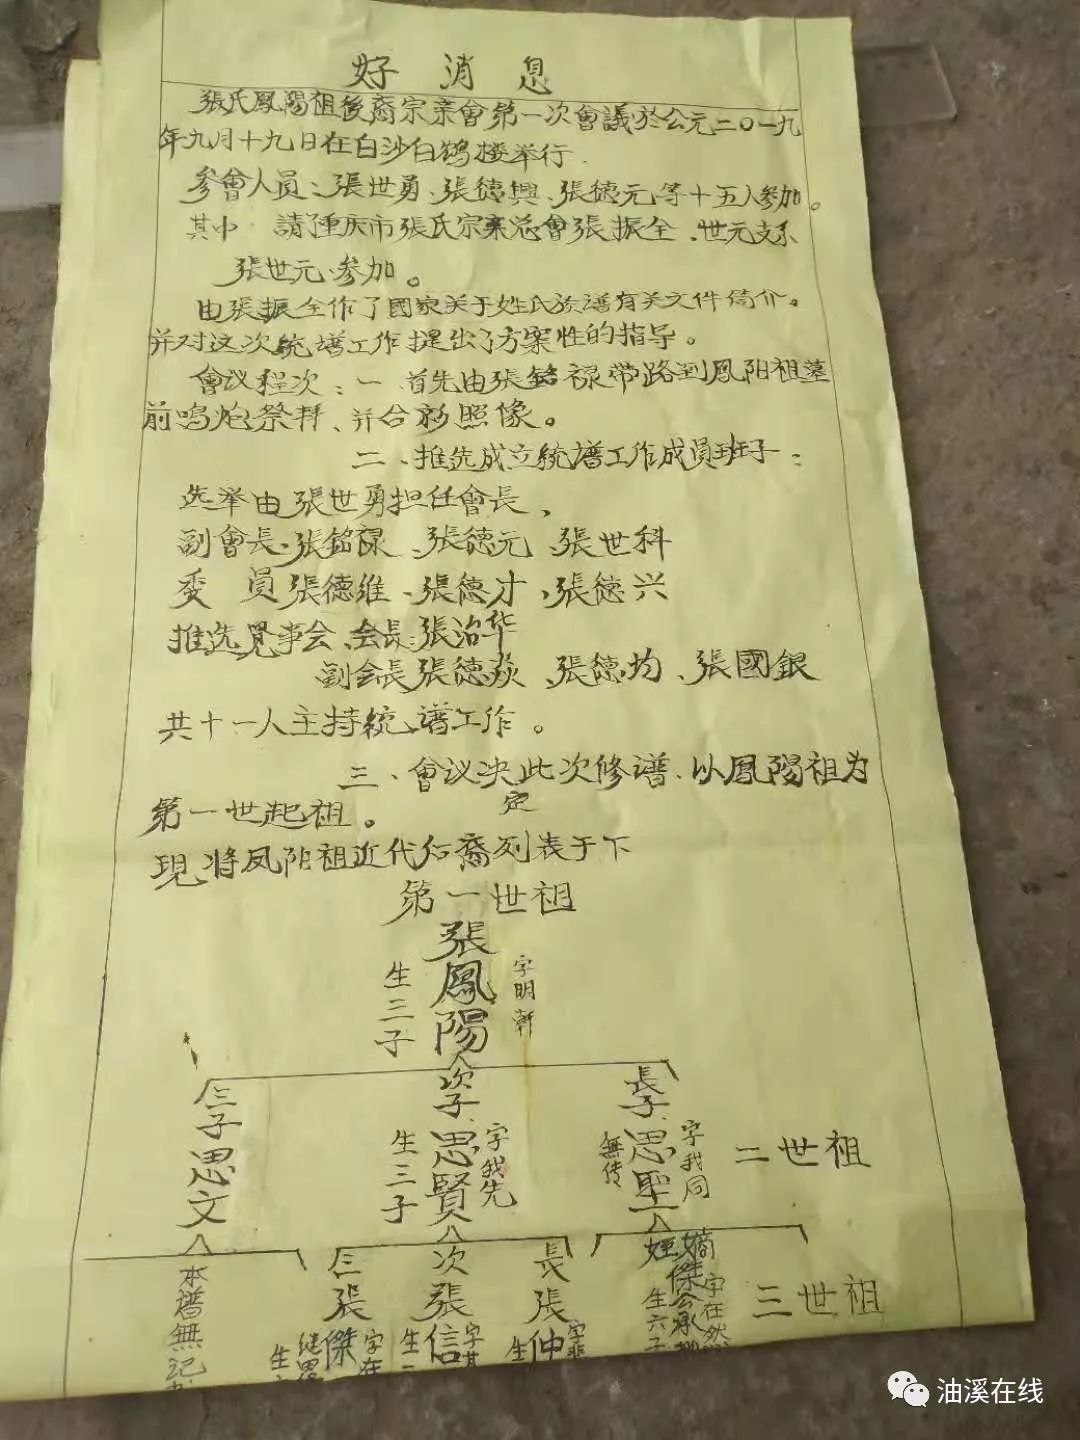 好消息
張氏鳳陽祖後裔宗亲會第一次會議於公元二〇一九
年九月十九日在白沙白鹤楼举行.
参會人员:張世勇、張德興、張德元等十五人参加。
其中 請了重庆市張氏宗亲总會張振全、世元支系
張世元、参加。
由張振全作了國家关于姓氏族谱有关文件简介。
并对这次统谱工作提出了方案性的指导。
會议程次:一、首先由張銘禄带路到鳳阳祖墓
前鸣炮祭拜、并合影照像。
二、推选成立统谱工作成員班子:
选举由張世勇担任會長,
副會長、張銘禄、張德元、張世科
委員張德維、張德才,張德兴
推选覓事会、会長:張治华
副会長張德焱、張德均、張國銀
共十一人主持統谱工作。
三、會议决定此次修谱、以鳳陽祖为
第一世起祖。
現将凤阳祖近代后裔列表于下
第一世祖
張鳳陽
字明軒
生三子
長子思聖
字我同
無传
次子思賢
字我先
生三子
三子思文
二世祖
字在然
生六子
長張仲
生
次張信
字其
生
三張傑
字在
生
本譜無記
三世祖
油溪在线